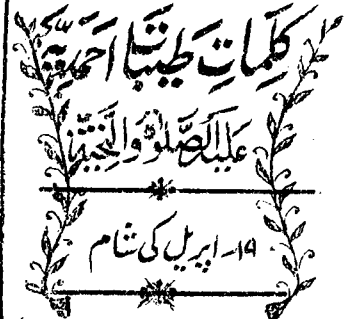 کلماتِ طیباتِ احمدیہ
علیہ الصلوٰۃ والتحیۃ
۱۹۔ اپریل کی شام